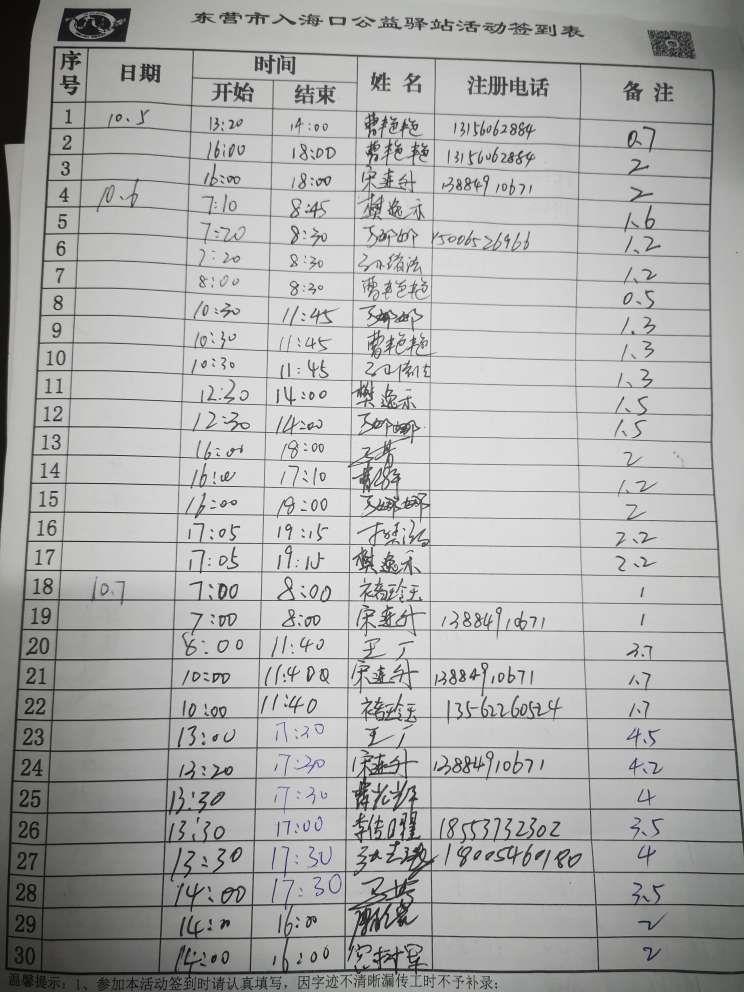 东营市入海口公益驿站活动签到表
序号 日期 时间 姓名 注册电话 备注
开始 结束
1 10.5 13:20 14:00 曹艳艳 13156062884 0.7
2 16:00 18:00 曹艳艳 13156062884 2
3 16:00 18:00 宋连升 13884910671 2
4 10.6 7:10 8:45 樊逸示 1.6
5 7:20 8:30 娜娜 15006526966 1.2
6 7:20 8:30 1.2
7 8:00 8:30 曹艳艳 0.5
8 10:30 11:45 娜娜 1.3
9 10:30 11:45 曹艳艳 1.3
10 10:30 11:45 1.3
11 12:30 14:00 樊逸示 1.5
12 12:30 14:00 娜娜 1.5
13 16:00 18:00 2
14 16:00 17:10 1.2
15 16:00 18:00 娜娜 2
16 17:05 19:15 2.2
17 17:05 19:15 樊逸示 2.2
18 10.7 7:00 8:00 1
19 7:00 8:00 宋连升 13884910671 1
20 8:00 11:40 王丁 3.7
21 10:00 11:40 宋连升 13884910671 1.7
22 10:00 11:40 13562260524 1.7
23 13:00 17:30 王丁 4.5
24 13:20 17:30 宋连升 13884910671 4.2
25 13:30 17:30 4
26 13:30 17:00 李传 18553732302 3.5
27 13:30 17:30 18005460180 4
28 14:00 17:30 3.5
29 14:00 16:00 2
30 14:00 16:00 2
温馨提示:1、参加本活动签到时请认真填写,因字迹不清晰漏传工时不予补录;